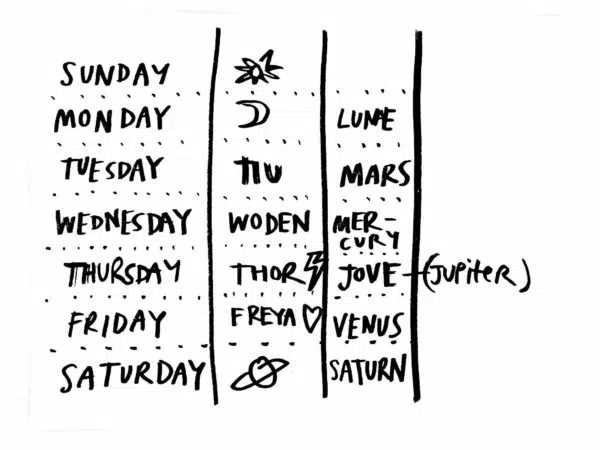 SUNDAY
MONDAY LUNAE
TUESDAY TIU MARS
WEDNESDAY WODEN MER-
CURY
THURSDAY THOR JOVE (JUPITER)
FRIDAY FREYA VENUS
SATURDAY SATURN